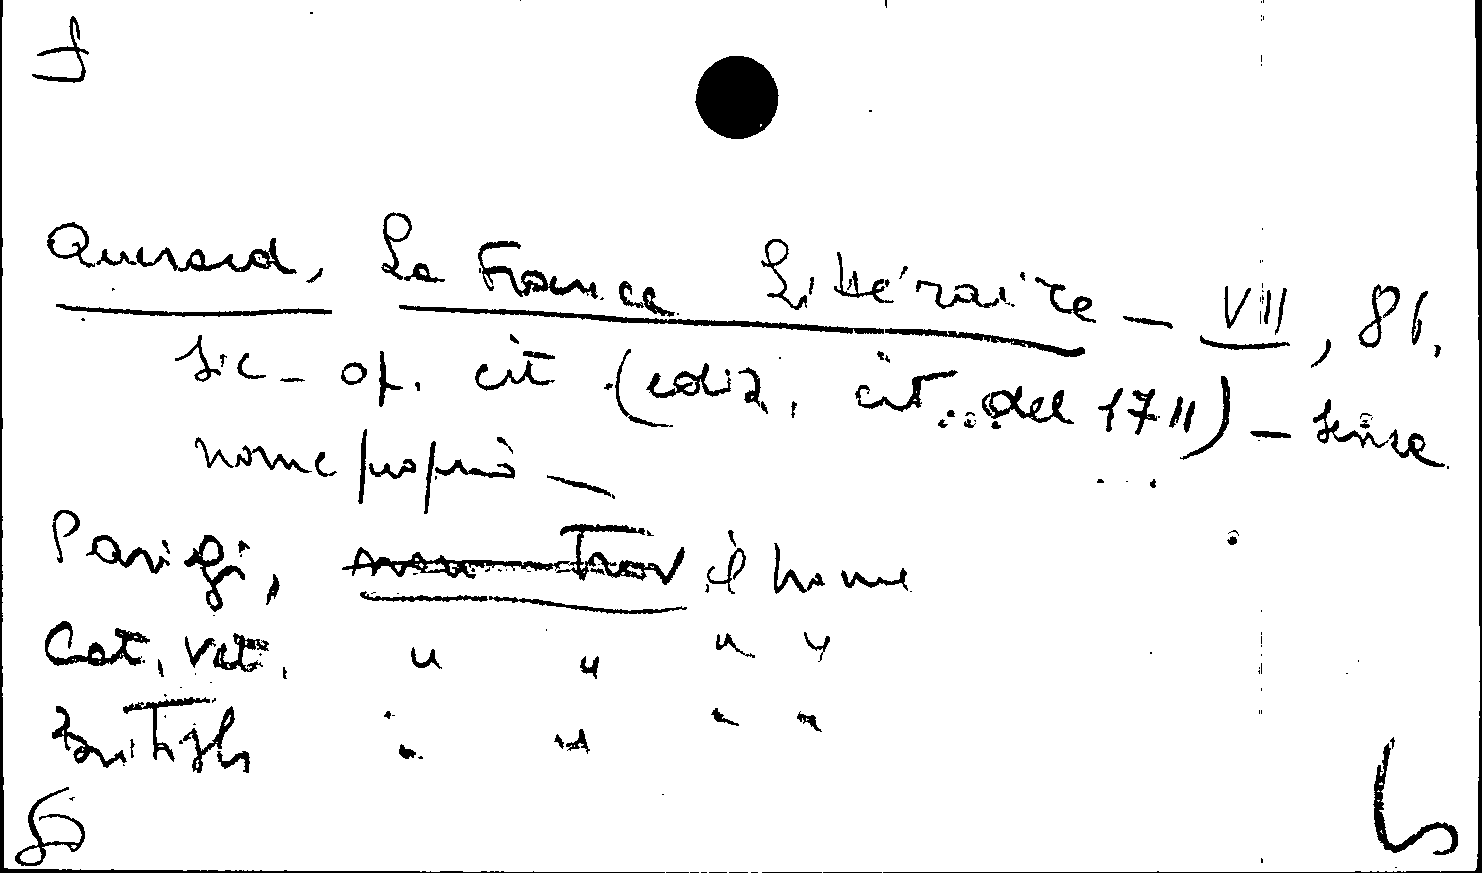 Querard, La France Littéraire - VII, 81.
sic - op. cit. (ediz. cit. del 1711) - senza
nome proprio -
Parigi, non trov il nome
Cat. Vat. " " " "
British " " " "